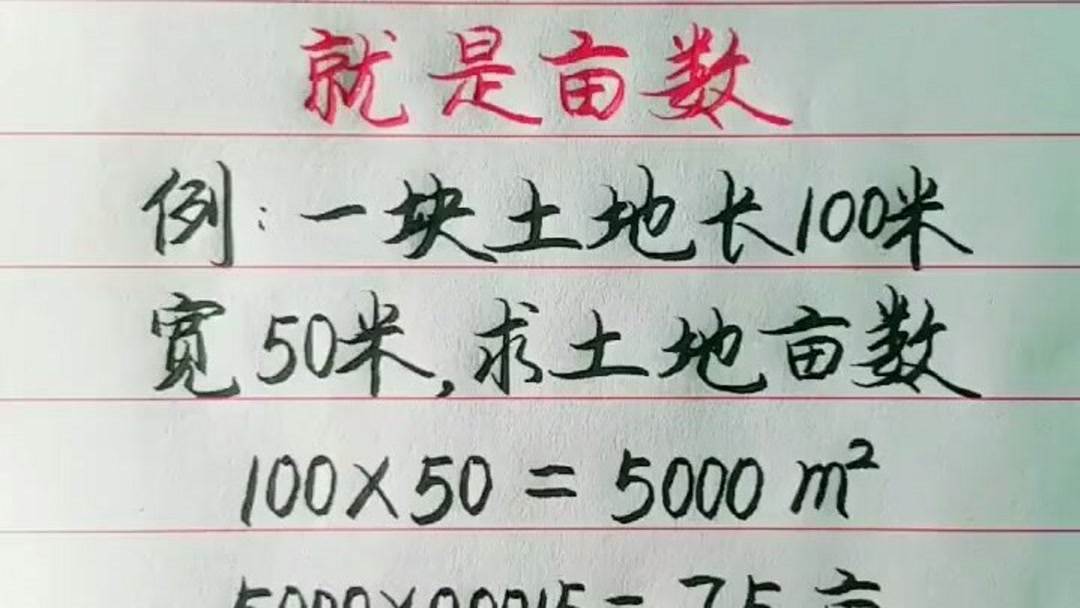 就是亩数
例:一块土地长100米
宽50米,求土地亩数
100×50=5000 m²
5000×00015=7.5亩